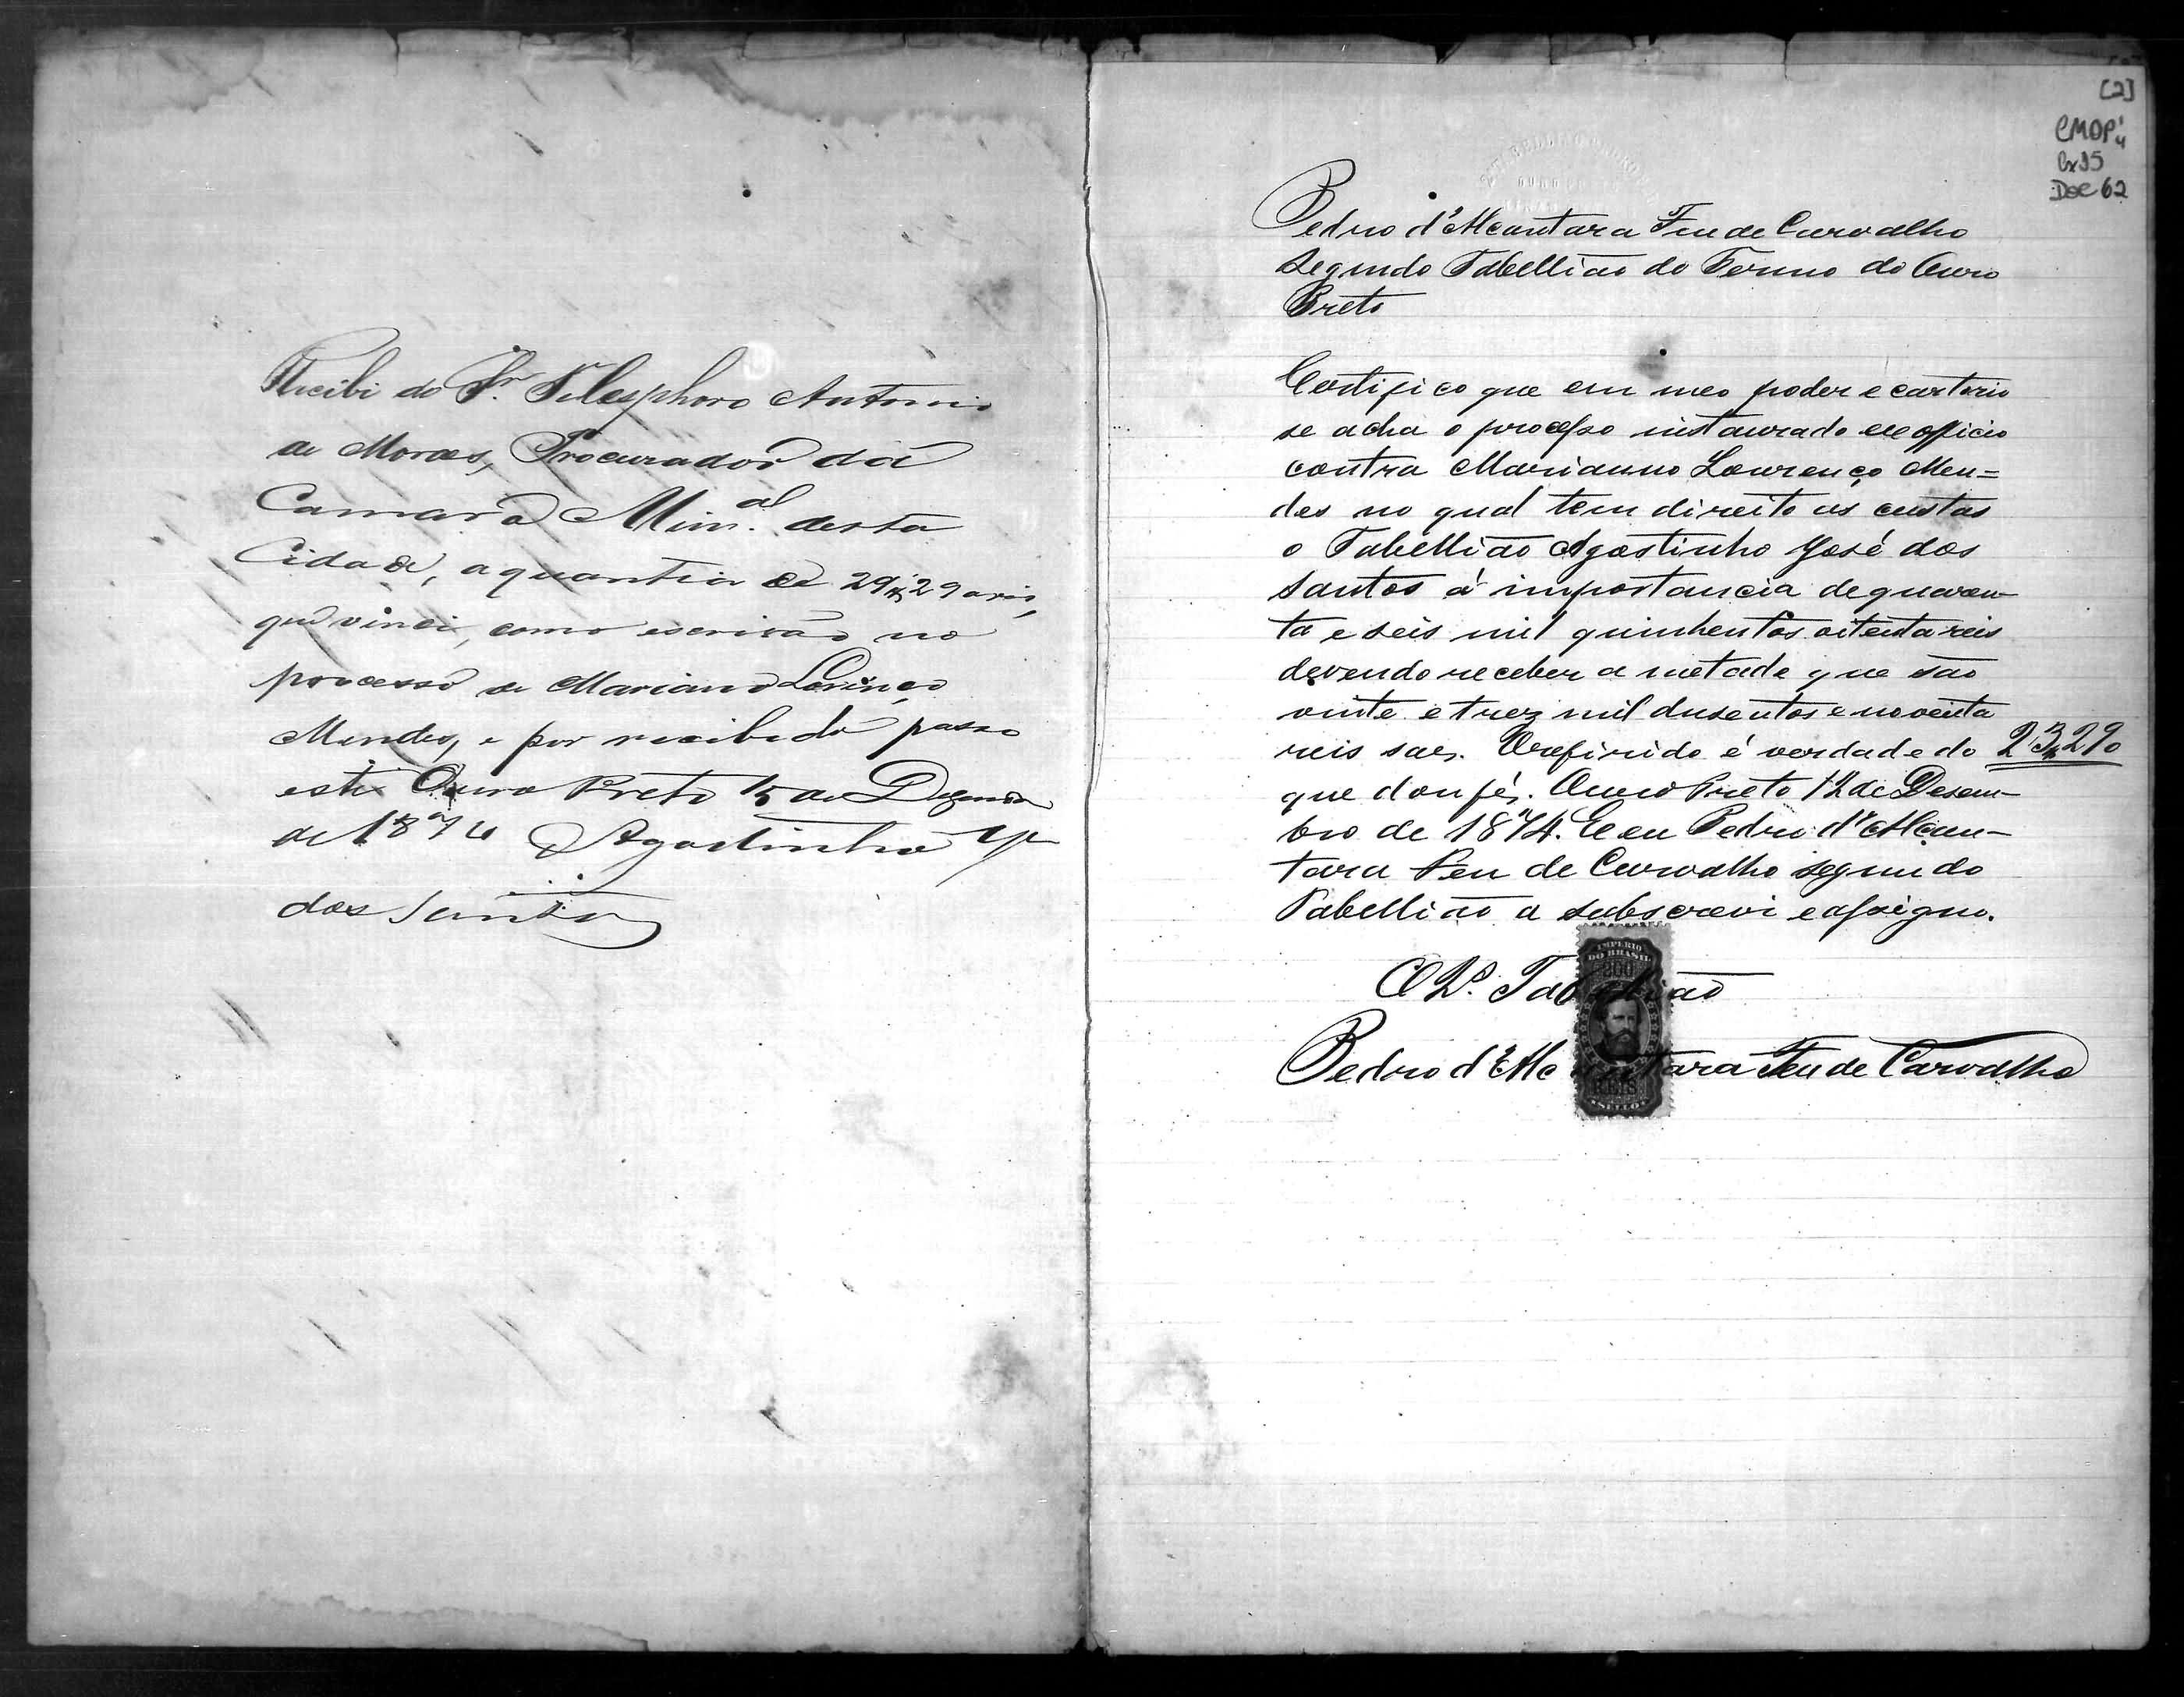 Recibi do Sr. Telesphoro Antonio
de Moraes, Procurador da
Camara Mun.al desta
Cidade, a quantia de
que vinci, como escrivão no
processo de Mariano Lourenço
Mendes, e por recibido passo
este Ouro Preto 15 de Dezembro
de 1874 Agostinho José
dos Santos
[2]
CMOP
Cx 95
Doc 62
Pedro d'Alcantara Feu de Carvalho
Segundo Tabellião do Termo do Ouro
Preto
Certifico que em meo poder e cartorio
se acha o processo instaurado ex officio
contra Marianno Lourenço Men=
des no qual tem direito as custas
o Tabellião Agostinho José dos
Santos á importancia de quaren-
ta e seis mil quinhentos oitenta reis
devendo receber a metade que são
vinte e trez mil dusentos e noventa
reis saes. O refirido é verdade do 23$290
que dou fé. Ouro Preto 12 de Desem-
bro de 1874. E eu Pedro d'Alcan-
tara Feu de Carvalho segundo
Tabellião a subscrevi e assigno.
IMPERIO
DO BRASIL
200
O 2º Tabellião
Pedro d'Alcantara Feu de Carvalho
REIS
SELLO